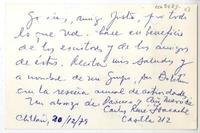 Gracias, amigo Justo, por todo
lo que Ud. hace en beneficio
de los escritores y de los amigos
de éstos. Reciba mis saludos y
a nombre de un Grupo, su
con la reseña anual de actividades.
Un abrazo de Pascua y Año Nuevo de
Carlos René
Chillán, 20/12/79 Casilla 212